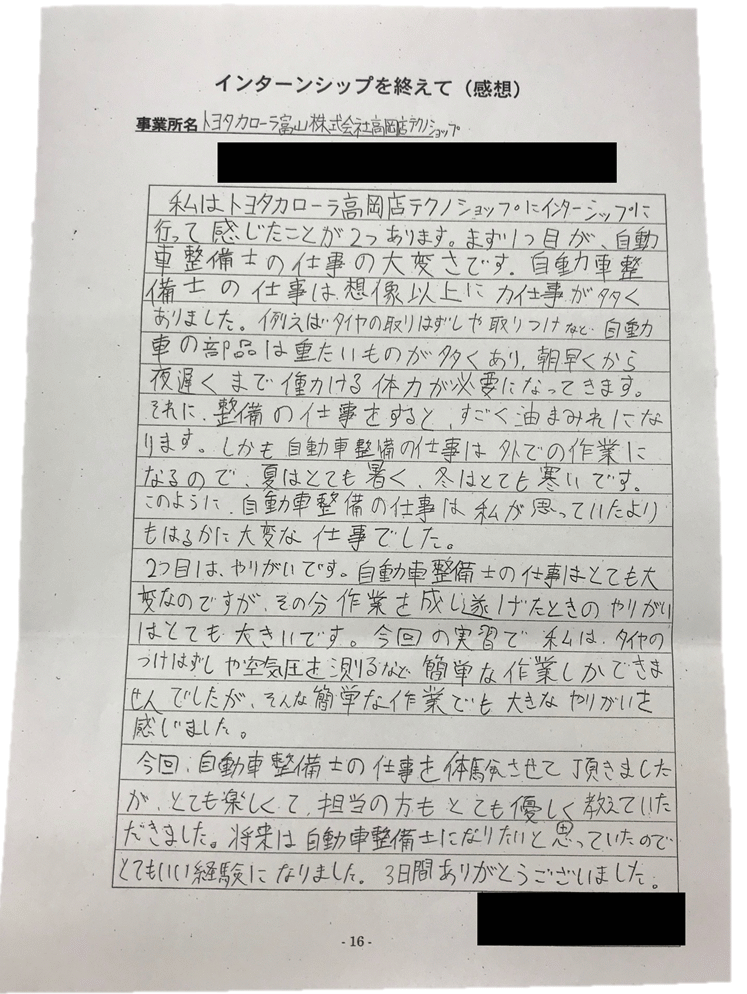 インターンシップを終えて（感想）
事業所名 トヨタカローラ富山株式会社高岡店テクノショップ
私はトヨタカローラ高岡店テクノショップにインターシップに
行って感じたことが2つあります。まず1つ目が、自動
車整備士の仕事の大変さです。自動車整
備士の仕事は想像以上に力仕事が多く
ありました。例えばタイヤの取りはずしや取りつけなど、自動
車の部品は重たいものが多くあり、朝早くから
夜遅くまで働ける体力が必要になってきます。
それに、整備の仕事をすると、すごく油まみれにな
ります。しかも自動車整備の仕事は外での作業に
なるので、夏はとても暑く、冬はとても寒いです。
このように、自動車整備の仕事は私が思っていたより
もはるかに大変な仕事でした。
2つ目は、やりがいです。自動車整備士の仕事はとても大
変なのですが、その分作業を成し遂げたときのやりがい
はとても大きいです。今回の実習で私は、タイヤの
つけはずしや空気圧を測るなど簡単な作業しかできま
せんでしたが、そんな簡単な作業でも大きなやりがいを
感じました。
今回、自動車整備士の仕事を体験させて頂きました
が、とても楽しくて、担当の方もとても優しく教えていた
だきました。将来は自動車整備士になりたいと思っていたので
とてもいい経験になりました。3日間ありがとうございました。
- 16 -